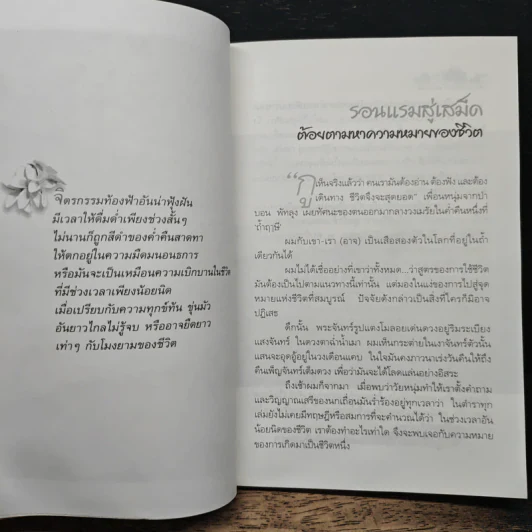 จิตรกรรมท้องฟ้าอันน่าฟุ้งฝัน
มีเวลาให้ดื่มด่ำเพียงช่วงสั้นๆ
ไม่นานก็ถูกสีดำของค่ำคืนสาดทา
ให้ตกอยู่ในความมืดมนอนธการ
หรือมันจะเป็นเหมือนความเบิกบานในชีวิต
ที่มีช่วงเวลาเพียงน้อยนิด
เมื่อเปรียบกับความทุกข์ท้น ขุ่นมัว
อันยาวไกลไม่รู้จบ หรืออาจยืดยาว
เท่าๆ กับโมงยามของชีวิต
รอนแรมสู่เสม็ด
ต้อยตามหาความหมายของชีวิต
“กูเห็นจริงแล้วว่า คนเรามันต้องอ่าน ต้องฟัง และต้อง
เดินทาง ชีวิตจึงจะสุดยอด” เพื่อนหนุ่มจากป่า
บอน พัทลุง เผยทัศนะของตนออกมากลางวงเมรัยในค่ำคืนหนึ่งที่
‘ถ้ำฤาษี’
ผมกับเขา-เรา (อาจ) เป็นเสือสองตัวในโลกที่อยู่ในถ้ำ
เดียวกันได้
ผมไม่ได้เชื่ออย่างที่เขาว่าทั้งหมด...ว่าสูตรของการใช้ชีวิต
มันต้องเป็นไปตามแนวทางนี้เท่านั้น แต่มองในแง่ของการไปสู่จุด
หมายแห่งชีวิตที่สมบูรณ์ ปัจจัยดังกล่าวเป็นสิ่งที่ใครก็มิอาจ
ปฏิเสธ
ดึกนั้น พระจันทร์รูปแตงโมลอยเด่นดวงอยู่ริมระเบียง
แสงจันทร์ ในดวงตาฉ่ำน้ำเมา ผมเห็นกระต่ายในเงาจันทร์ตัวนั้น
แสนจะอุดอู้อยู่ในวงเดือนแคบ ในใจมันคงภาวนาเร่งวันคืนให้ถึง
คืนเพ็ญจันทร์เต็มดวง เพื่อว่ามันจะได้โลดแล่นอย่างอิสระ
ถึงเช้าผมก็จากมา เมื่อพบว่าวัยหนุ่มทำให้เราตั้งคำถาม
และวิญญาณเสรีของนกเถื่อนมันร่ำร้องอยู่ทุกเวลาว่า ในตำราทุก
เล่มยังไม่เคยมีทฤษฎีหรือสมการที่จะคำนวณได้ว่า ในช่วงเวลาอัน
น้อยนิดของชีวิต เราต้องทำอะไรเท่าใด จึงจะพบเจอกับความหมาย
ของการเกิดมาเป็นชีวิตหนึ่ง